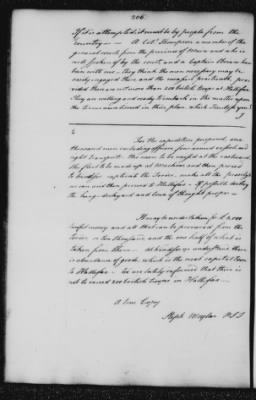 206
If it is attempted it must be by people from the
country — A Col. Thompson a member of the
general court from the province of Main and who is
well spoken of by the court, and a Captain
been with me — they think the men necessary may be
easily engaged there and the vessels provided
there are not more than 200 british troops at Hallifax
They are willing and ready to embark in the matter upon
the terms mentioned in their plan which I
For the expedition proposed, one
thousand men including officers four armed vessels and
eight transports. The men to be raised at the eastward
the fleet to be made up at Machias and then proceed
to Windsor captivate the Tories, make all the
we can and then proceed to Hallifax — If possible destroy
the king's dockyard and town if thought proper —
A may to undertaken for £ 2,000
lawful money and all that can be procured from the
Tories or ten thousand and the one half of what is
taken from them — at Windsor
is abundance of goods which is the most capital town
to Hallifax — we are lately informed that there is
not to exceed 200 british troops in Hallifax —
A true Copy